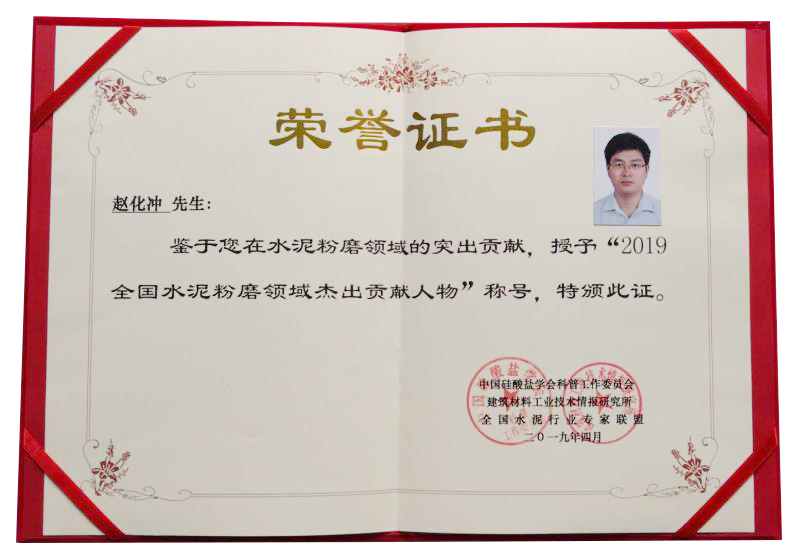 荣誉证书
赵化冲 先生：
鉴于您在水泥粉磨领域的突出贡献，授予“2019
全国水泥粉磨领域杰出贡献人物”称号，特颁此证。
中国硅酸盐学会科普工作委员会
建筑材料工业技术情报研究所
全国水泥行业专家联盟
二〇一九年四月